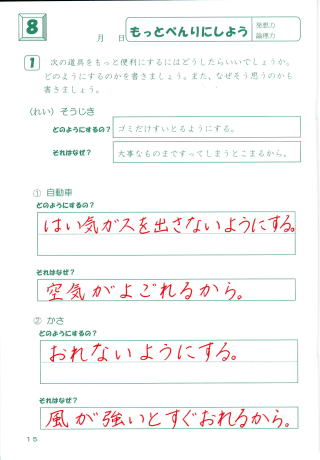 8
月 日
もっとべんりにしよう
発想力
論理力
1 次の道具をもっと便利にするにはどうしたらいいでしょうか。
どのようにするのかを書きましょう。また、なぜそう思うのかも
書きましょう。
(れい) そうじき
どのようにするの? ゴミだけすいとるようにする。
それはなぜ? 大事なものまですってしまうとこまるから。
① 自動車
どのようにするの?
はい気ガスを出さないようにする。
それはなぜ?
空気がよごれるから。
② かさ
どのようにするの?
おれないようにする。
それはなぜ?
風が強いとすぐおれるから。
15